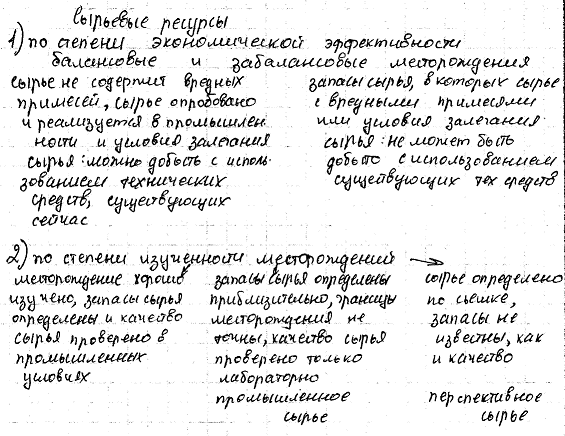 сырьевые ресурсы
1) по степени экономической эффективности
балансовые и забалансовые месторождения
сырье не содержит вредных
примесей, сырье опробовано
и реализуется в промышлен
ности и условия залегания
сырья: можно добыть с исполь-
зованием технических
средств, существующих
сейчас
запасы сырья, в которых сырье
с вредными примесями
или условия залегания
сырья: не может быть
добыто с использованием
существующих тех средств
2) по степени изученности месторождений →
месторождение хорошо
изучено, запасы сырья
определены и качество
сырья проверено в
промышленных
условиях
запасы сырья определены
приблизительно, границы
месторождения не
точны, качество сырья
проверено только
лабораторно
промышленное
сырье
сырье определено
по съемке,
запасы не
известны, как
и качество
перспективное
сырье